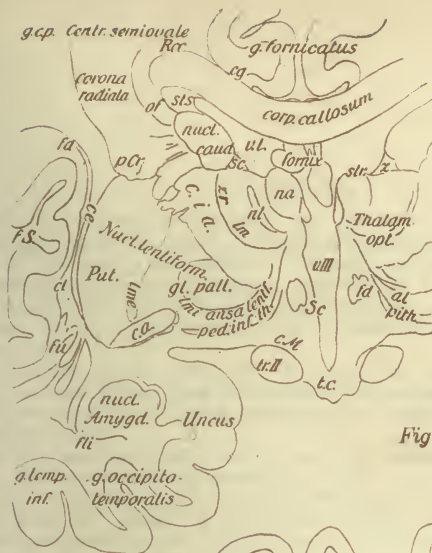 g.c.p. Centr. semiovale
Rcc
g. fornicatus
cg
corona
radiata
of
sts
corp. callosum
nucl.
caud
Sc
v.l.
fornix
str. z
fa
pCr
c. i. a.
zr
lm
nl
na
Thalam.
opt.
ce
f S.
Nucl. lentiform.
Put.
lme
gl. pall.
lmi
ansa lenti.
ped. inf. th.
v III
Sc
fd
al
pith.
cl
fu
c.a.
c.M
tr. II
t.c.
nucl.
Amygd.
Uncus
fli
Fig
g. temp.
inf.
g. occipito-
temporalis